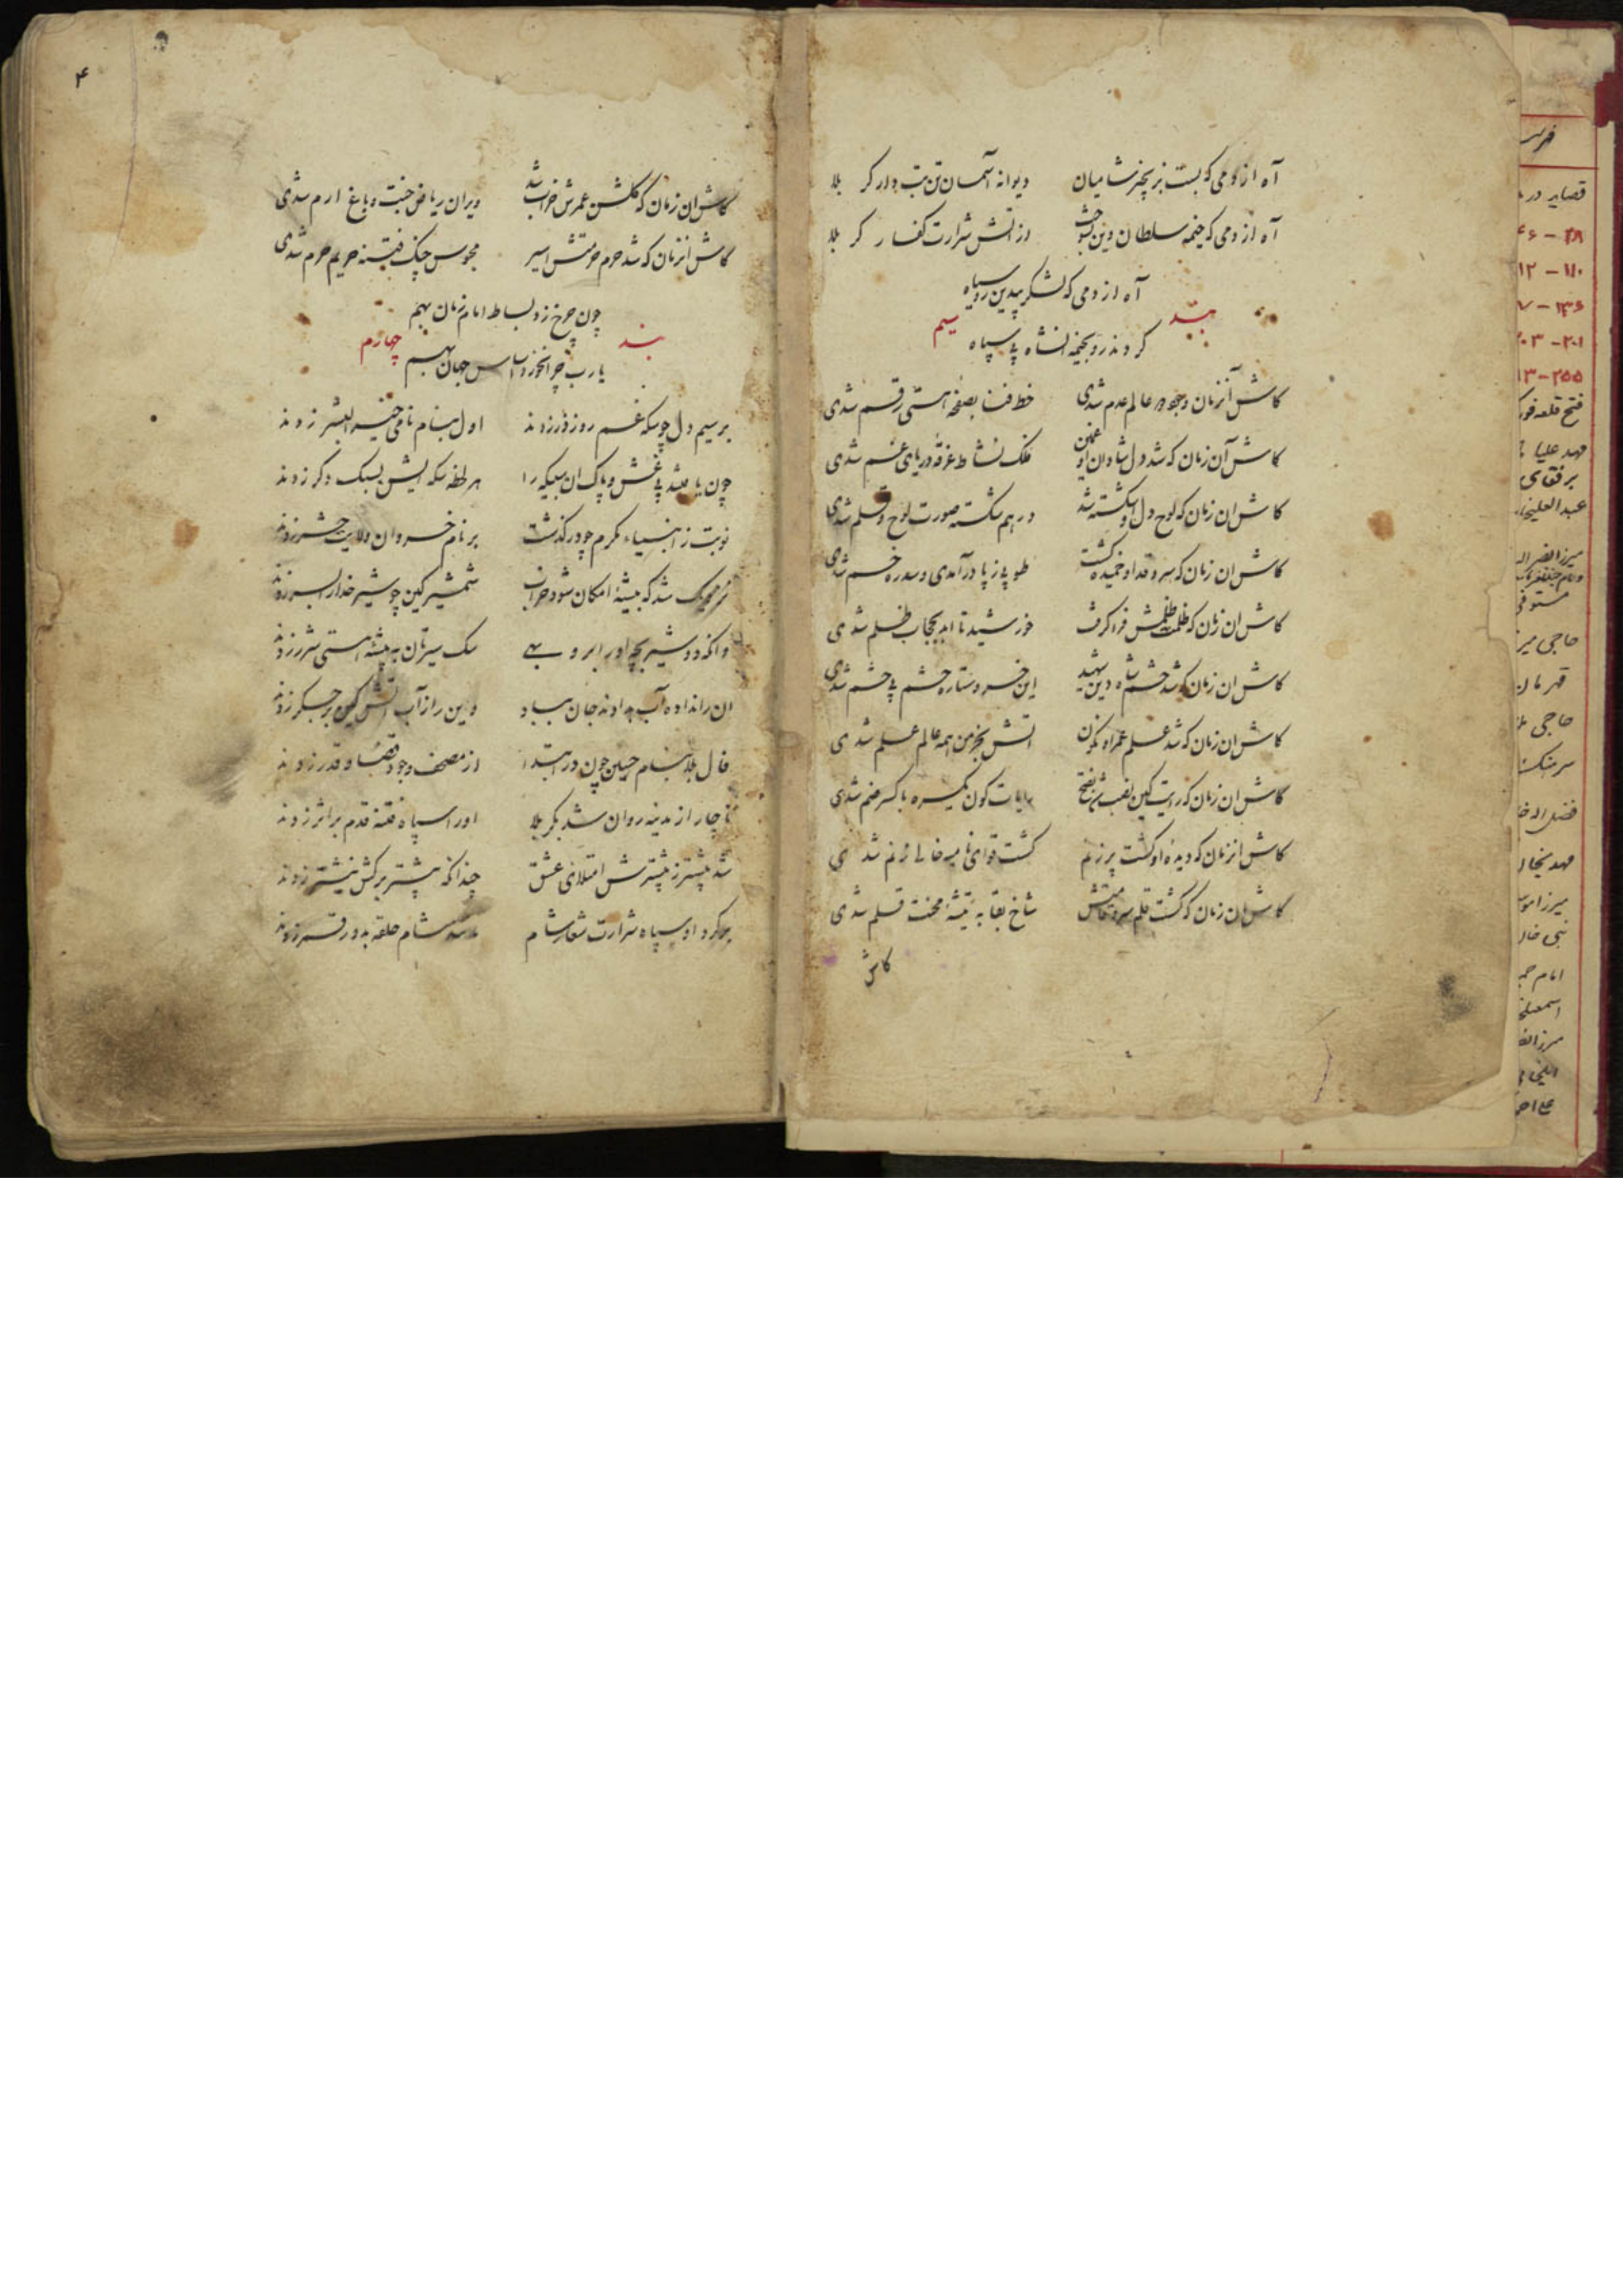 آه از دمی که بست بزنجیر شامیان دیوانه آسمان تن تب دار کربلا
آه از دمی که خیمه سلطان دین بسوخت از آتش شرارت کفار کربلا
آه از دمی که لشکر بیدین روسیاه
کردند رو بخیمه انشاه بی سپاه
بند سیم
کاش آنزمان وجود عالم عدم شدی خط فنا بصفحه هستی رقم شدی
کاش آن زمان که شد دل شادان او غمین فلک نشاط غرقه دریای غم شدی
کاش ان زمان که لوح دل او شکسته شد درهم شکسته صورت لوح و قلم شدی
کاش ان زمان که سرو قد او خمیده گشت طوبی ز پا درآمدی و سدره خم شدی
کاش ان زمان که ظلمت ظلمش فرا گرفت خورشید تا ابد بحجاب ظلم شدی
کاش ان زمان که شد چشم شاه دین شهید این خسرو ستاره حشم بی حشم شدی
کاش ان زمان که شد علم عمر او نکون اتش بخرمن همه عالم علم شدی
کاش ان زمان که رایت کین نصب شد بفتح رایات کون یکسره با کسر ضم شدی
کاش انزمان که دیده او گشت پر ز نم کشت قوای نامیه خالی ز نم شدی
کاش ان زمان که گشت قلم سرو قامتش شاخ بقا به تیشه محنت قلم شدی
کاش
۴
کاش ان زمان که گلشن عمرش خراب شد ویران ریاض جنت و باغ ارم شدی
کاش انزمان که شد حرم حرمتش اسیر محبوس چنگ فتنه حریم حرم شدی
چون چرخ زد بساط امام زمان بهم
یا رب چرا نخورد اساس جهان بهم
بند چهارم
بر سیم دل چو سکه غم روز ذر زدند اول بنام نامی خیر البشر زدند
چون یافتند بی غش و پاک ان سبیکه را هر لحظه سکه ایش بسبک دکر زدند
نوبت ز انبیاء مکرم چو در گذشت بر نام خسروان ولایت حشر زدند
شد که بیشه امکان شود خراب شمشیر کین چو شیر خدا را بسر زدند
وانکه دو شیر بچه او را برو بهی سک سیرتان به بیشه هستی شرر زدند
ان را نداده آب بدادند جان بباد وین را ز آب آتش کین بر جگر زدند
فال بلا بنام حسین چون در ابتدا از مصحف وجود قضا و قدر زدند
ناچار از مدینه روان شد بکربلا او را سپاه فتنه قدم بر اثر زدند
شد بیشتر ز بیشترش ابتلای عشق چندانکه بیشتر برکش نیشتر زدند
برگرد او سپاه شرارت شعار شام شام حلقه بدور قمر زدند
فهرست
قصاید در
۲۸ - ۴۶
۱۱۰ - ۱۲
۲۰۱ - ۲۰۳
۲۵۵ - ۱۳
فتح قلعه
مهد علیا
حاجی میر
قهرمان
حاجی ملا
نبی خان
امام جم